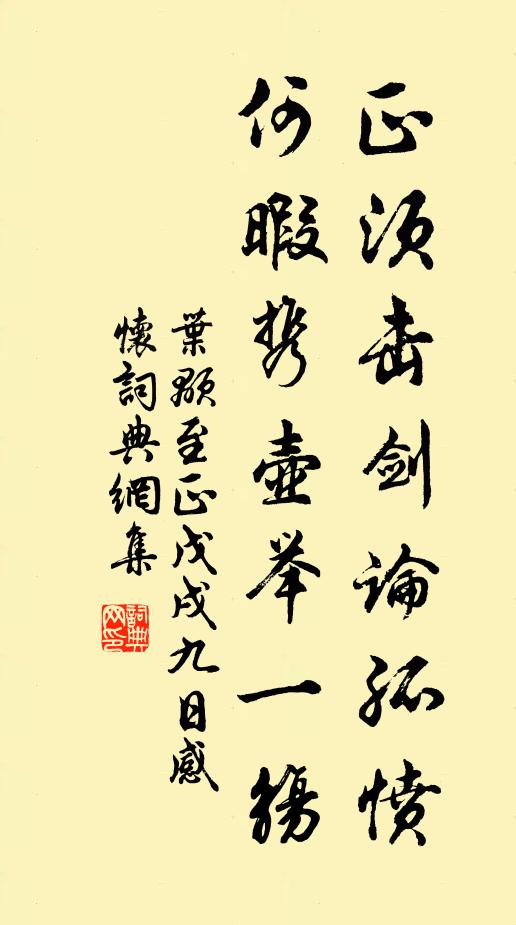 正须击剑论孤愤
何暇携壶举一觞
葉顒至正戊戌九日感
懷詞典網集
詞典网印